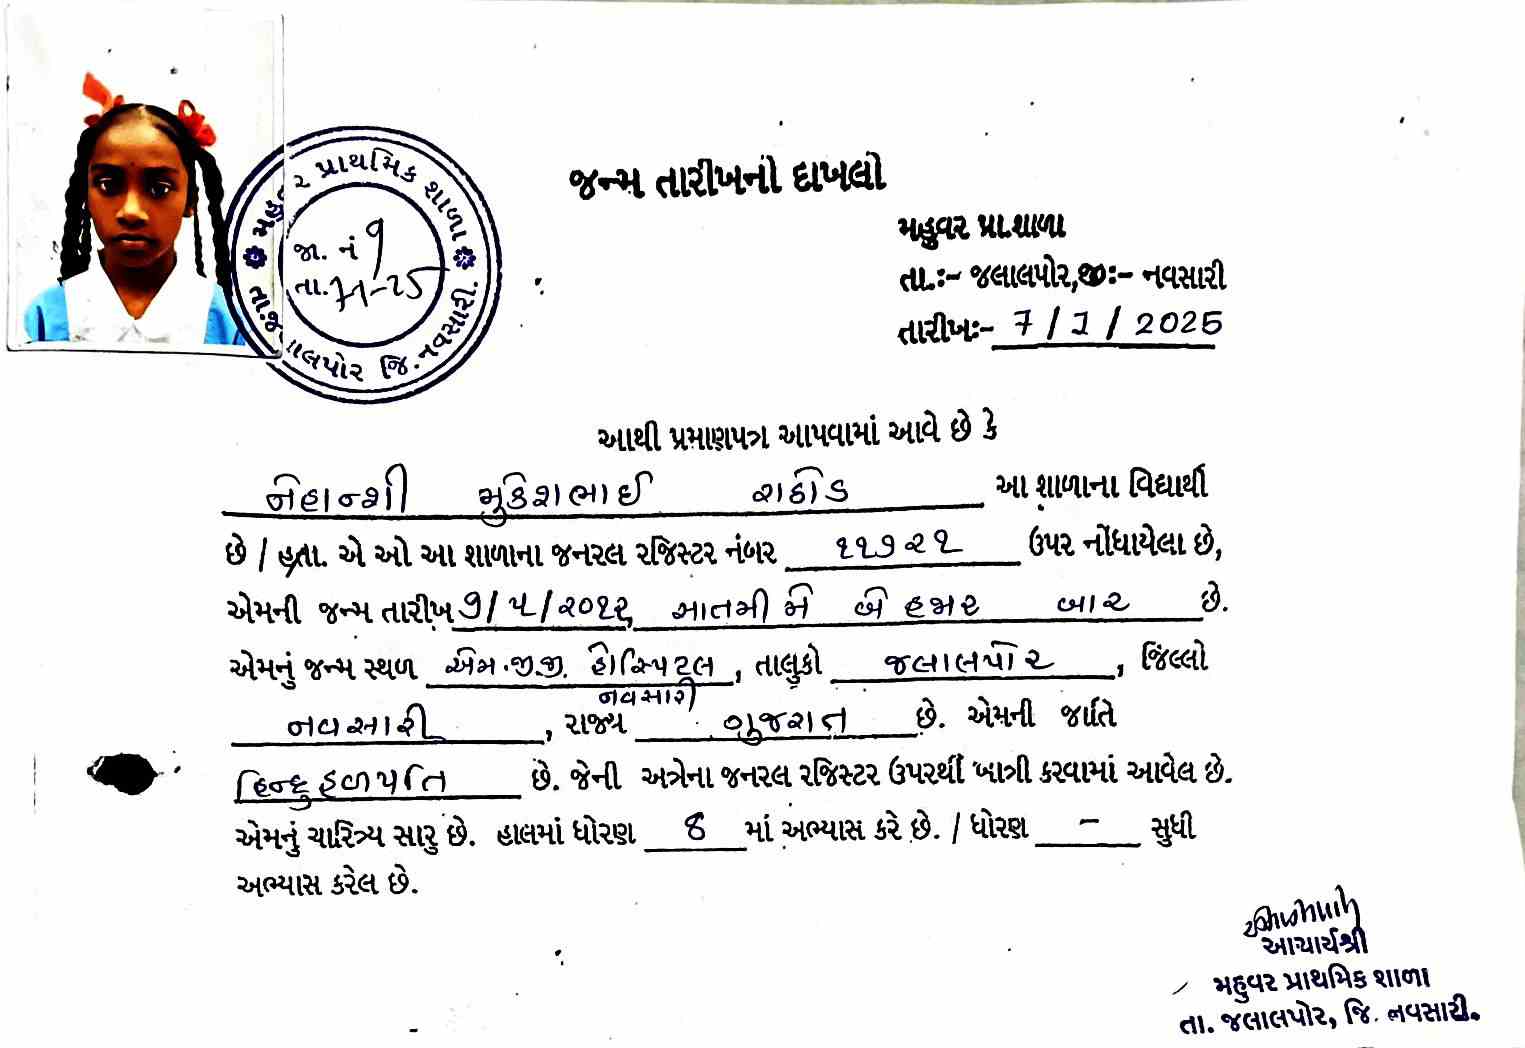 મહુવર પ્રાથમિક શાળા
તા.જલાલપોર જિ.નવસારી.
જા. નં 9
તા. 7-1-25
જન્મ તારીખનો દાખલો
મહુવર પ્રા.શાળા
તા.:- જલાલપોર,જી:- નવસારી
તારીખઃ- 7/1/2025
આથી પ્રમાણપત્ર આપવામાં આવે છે કે
નેહાન્શી મુકેશભાઈ રાઠોડ આ શાળાના વિદ્યાર્થી
છે / હતા. એ ઓ આ શાળાના જનરલ રજિસ્ટર નંબર ૧૧૭૨૧ ઉપર નોંધાયેલા છે,
એમની જન્મ તારીખ ૭/૫/૨૦૧૨, સાતમી મે બે હજાર બાર છે.
એમનું જન્મ સ્થળ એમ.જી.જી. હોસ્પિટલ, તાલુકો જલાલપોર, જિલ્લો
નવસારી
નવસારી, રાજ્ય ગુજરાત છે. એમની જાતિ
હિન્દુ હળપતિ છે. જેની અત્રેના જનરલ રજિસ્ટર ઉપરથી ખાત્રી કરવામાં આવેલ છે.
એમનું ચારિત્ર્ય સારુ છે. હાલમાં ધોરણ 8 માં અભ્યાસ કરે છે. / ધોરણ - સુધી
અભ્યાસ કરેલ છે.
આચાર્યશ્રી
મહુવર પ્રાથમિક શાળા
તા. જલાલપોર, જિ. નવસારી.